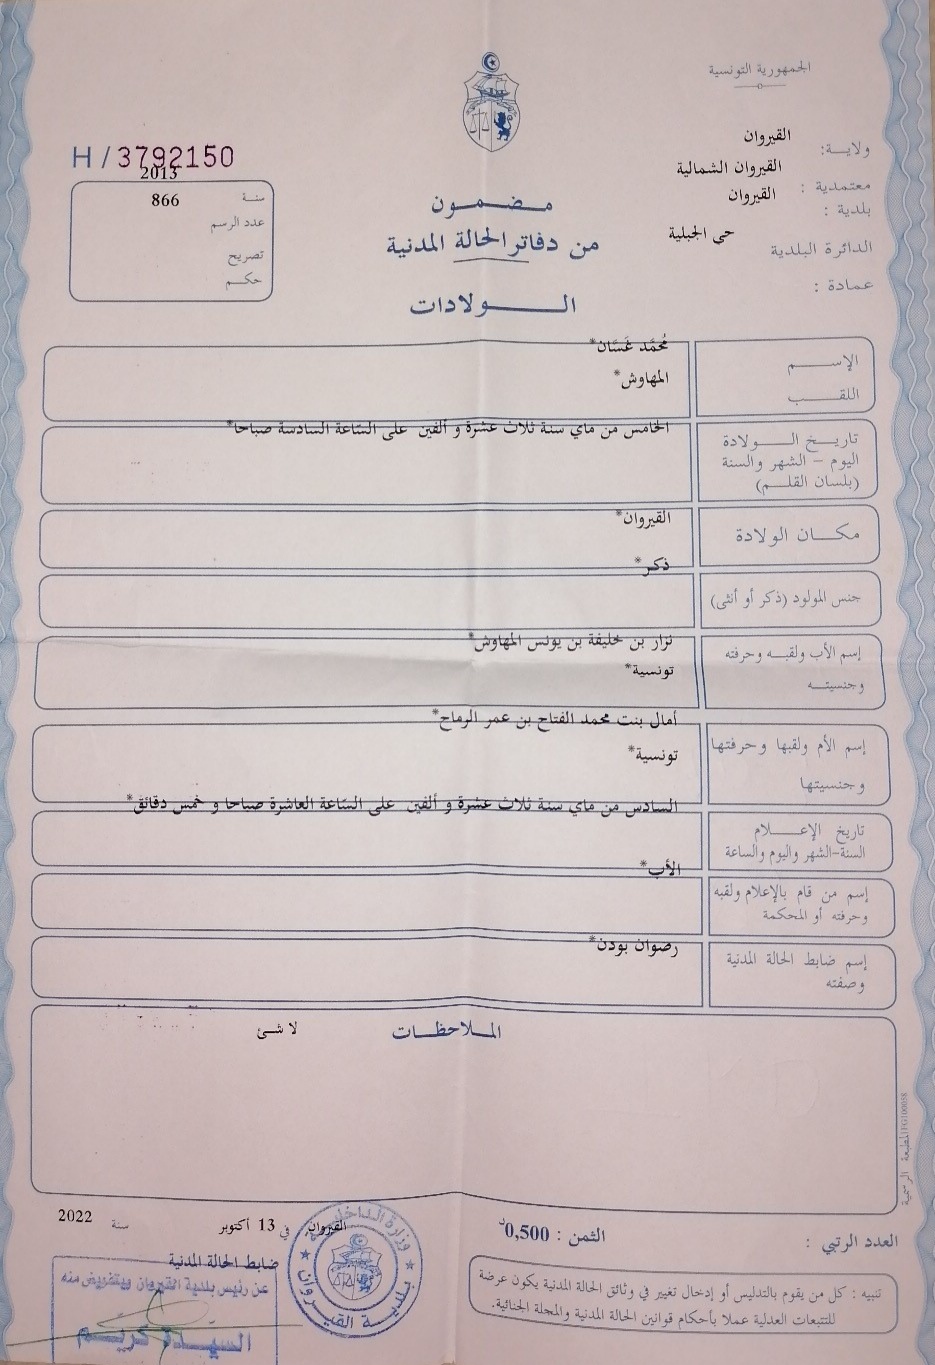 الجمهورية التونسية
H/3792150
ولاية: القيروان
معتمدية : القيروان الشمالية
بلدية : القيروان
الدائرة البلدية حي الجبلية
عمادة :
2013
سنة
866
عدد الرسم
تصريح
حكم
مضمون
من دفاتر الحالة المدنية
الولادات
الإسم
اللقب
مُحمَّد غَسَان*
المهاوش*
تاريخ الولادة
اليوم - الشهر والسنة
(بلسان القلم)
الخامس من ماي سنة ثلاث عشرة و ألفين على السّاعة السادسة صباحا*
مكان الولادة
القيروان*
جنس المولود (ذكر أو أنثى)
ذكر*
إسم الأب ولقبه وحرفته
وجنسيته
نزار بن خليفة بن يونس المهاوش*
تونسية*
إسم الأم ولقبها وحرفتها
وجنسيتها
أمال بنت محمد الفتاح بن عمر الرماح*
تونسية*
تاريخ الإعلام
السنة-الشهر واليوم والساعة
السادس من ماي سنة ثلاث عشرة و ألفين على السّاعة العاشرة صباحا و خمس دقائق*
إسم من قام بالإعلام ولقبه
وحرفته أو المحكمة
الأب*
إسم ضابط الحالة المدنية
وصفته
رضوان بودن*
الملاحظات
لا شئ
المطبعة الرسمية
العدد الرتبي :
الثمن : 0,500د
القيروان في 13 أكتوبر سنة 2022
ضابط الحالة المدنية
عن رئيس بلدية القيروان وبتفويض منه
السيدة كريم
وزارة الداخلية
بلدية القيروان
تنبيه : كل من يقوم بالتدليس أو إدخال تغيير في وثائق الحالة المدنية يكون عرضة
للتتبعات العدلية عملا بأحكام قوانين الحالة المدنية والمجلة الجنائية.